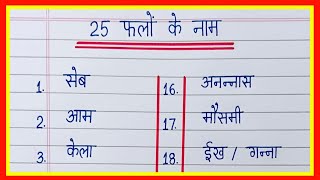 25 फलों के नाम
1. सेब
2. आम
3. केला
16. अनन्नास
17. मौसमी
18. ईख / गन्ना